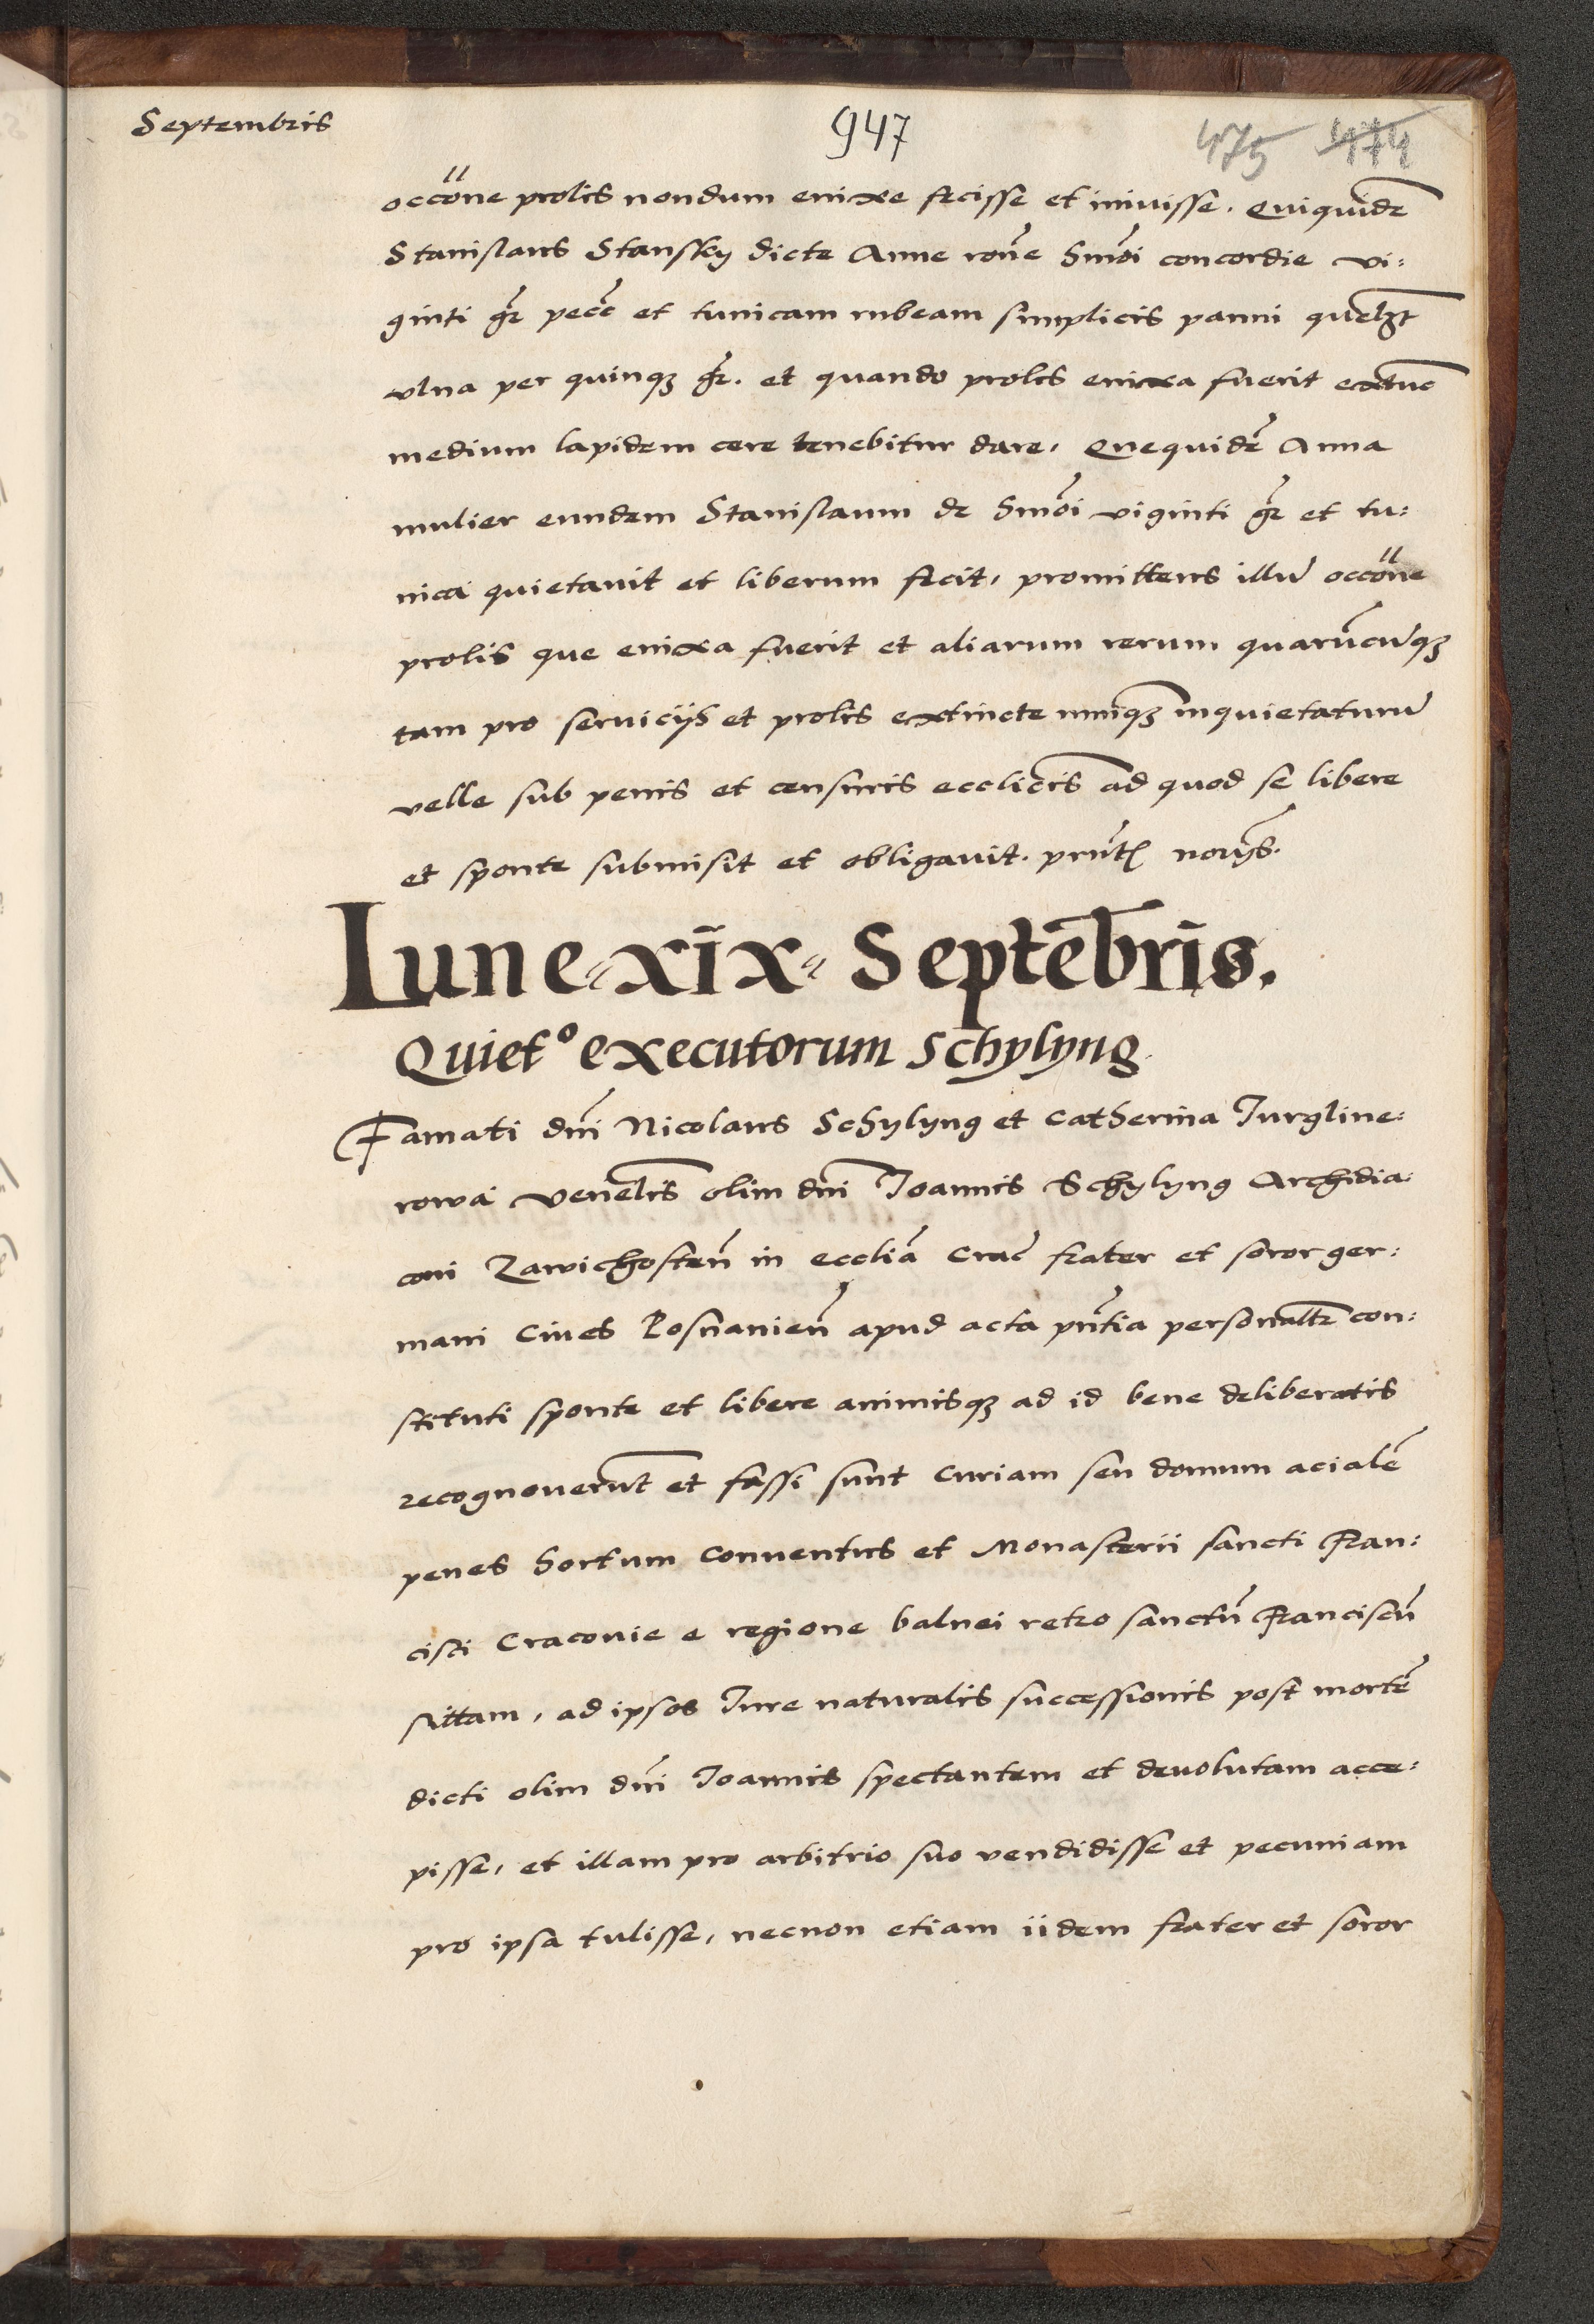 Septembris
947
475 474
occõne prolis nondum enixe fecisse et inivisse. Quiquidẽ
Stanislaus Stansky dicte Anne rõne hmõi concordie vi:
ginti gr̃ pecc̃ et tunicam rubeam simplicis panni quelꝫt
ulna per quinqꝫ gr̃. et quando prolis enixa fuerit extũc
medium lapidem cere tenebitur dare, Quequidẽ Anna
mulier eundem Stanislaum de hmõi viginti gr̃ et tu:
nica quietavit et liberum fecit, promittens illũ occõne
prolis que enixa fuerit et aliarum rerum quarũcũqꝫ
tam pro serviciis et prolis extincte nunqꝫ inquietaturũ
velle sub penis et censuris eccl̃icis ad quod se libere
et sponte submisit et obligavit. prñt
Lune xix Septẽbris.
Quietᵒ executorum Schylyng
Famati dñi Nicolaus Schylyng et Catherina Jurgline:
rowa venelis olim dñi Joannis Schylyng Archidia:
coni Zawichosteñ in eccl̃ia Crac̃ frater et soror ger:
mani Cives Posnanieñ apud acta pñtia personaltr̃ con:
stituti sponte et libere animisqꝫ ad id bene deliberatis
recognoverũt et fassi sunt Curiam seu domum acialẽ
penes hortum Conventus et Monasterii sancti Fran:
cisci Cracovie e regione balnei retro sanctũ Franciscũ
sittam, ad ipsos Jure naturalis successionis post mortẽ
dicti olim dñi Joannis spectantem et devolutam acce:
pisse, et illam pro arbitrio suo vendidisse et pecuniam
pro ipsa tulisse, necnon etiam iidem frater et soror